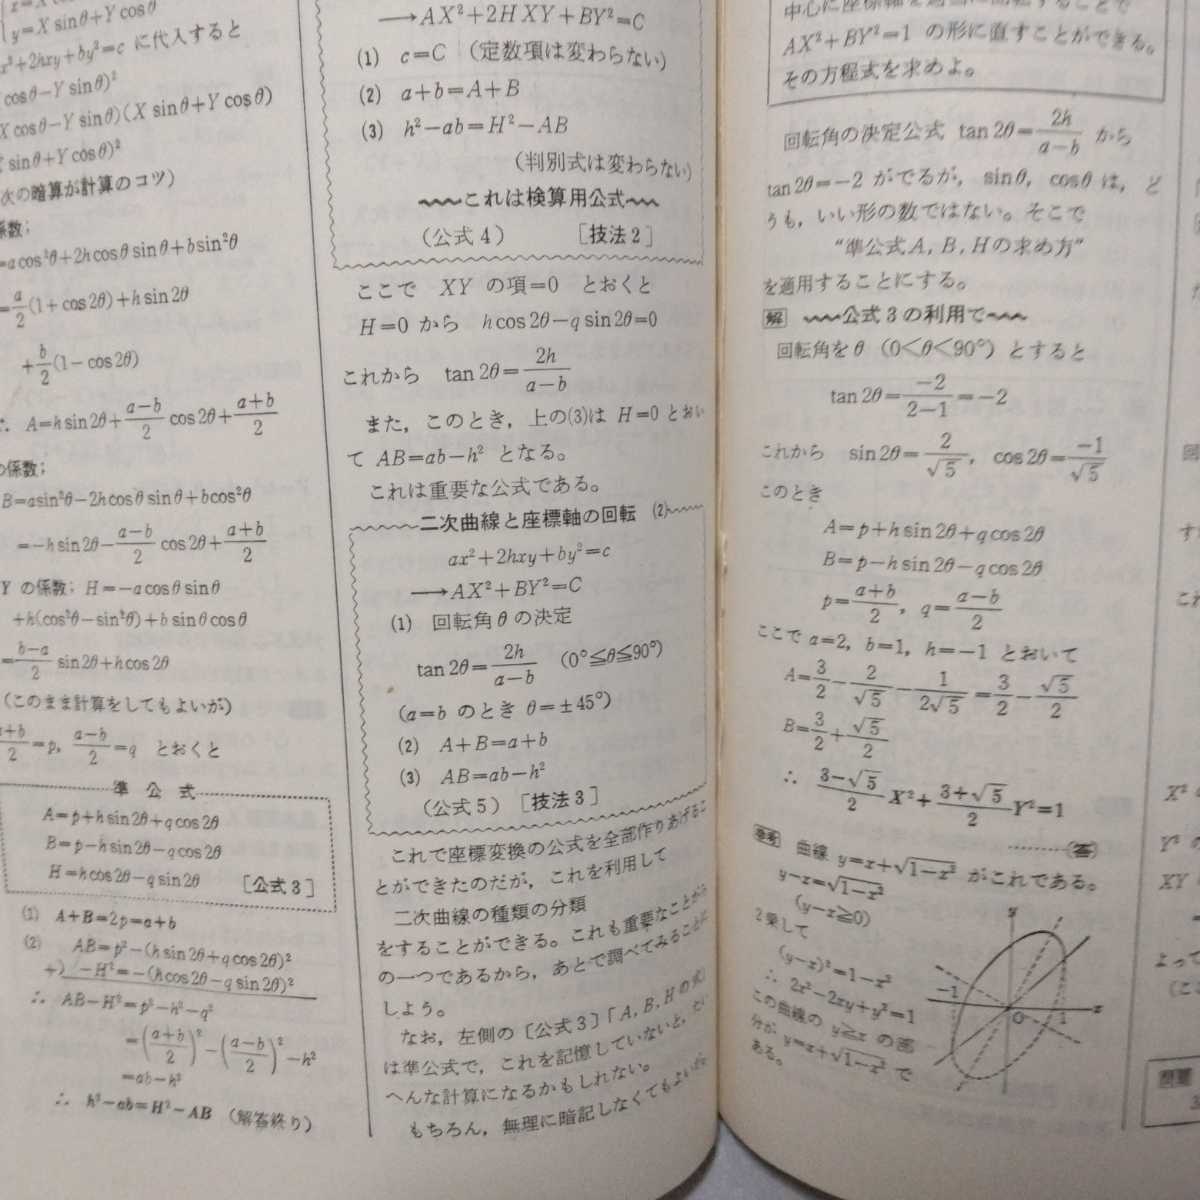 y=X sinθ+Y cosθ
x²+2hxy+by²=c に代入すると
cosθ−Y sinθ)²
X cosθ−Y sinθ)(X sinθ+Y cosθ)
X sinθ+Y cosθ)²
次の暗算が計算のコツ)
係数;
=a cos²θ+2h cosθ sinθ+b sin²θ
=a/2(1+cos 2θ)+h sin 2θ
+b/2(1−cos 2θ)
∴ A=h sin 2θ+(a−b)/2 cos 2θ+(a+b)/2
の係数;
B=a sin²θ−2h cosθ sinθ+b cos²θ
=−h sin 2θ−(a−b)/2 cos 2θ+(a+b)/2
Y の係数; H=−a cosθ sinθ
+h(cos²θ−sin²θ)+b sinθ cosθ
=(b−a)/2 sin 2θ+h cos 2θ
(このまま計算をしてもよいが)
(a+b)/2=p, (a−b)/2=q とおくと
準公式
A=p+h sin 2θ+q cos 2θ
B=p−h sin 2θ−q cos 2θ
H=h cos 2θ−q sin 2θ [公式3]
(1) A+B=2p=a+b
(2) AB=p²−(h sin 2θ+q cos 2θ)²
+) −H²=−(h cos 2θ−q sin 2θ)²
∴ AB−H²=p²−h²−q²
=((a+b)/2)²−((a−b)/2)²−h²
=ab−h²
∴ h²−ab=H²−AB (解答終り)
→AX²+2HXY+BY²=C
(1) c=C (定数項は変わらない)
(2) a+b=A+B
(3) h²−ab=H²−AB
(判別式は変わらない)
これは検算用公式
(公式4) [技法2]
ここで XY の項=0 とおくと
H=0 から h cos 2θ−q sin 2θ=0
これから tan 2θ=2h/(a−b)
また, このとき, 上の(3)は H=0 とおい
て AB=ab−h² となる。
これは重要な公式である。
二次曲線と座標軸の回転 (2)
ax²+2hxy+by²=c
→AX²+BY²=C
(1) 回転角 θ の決定
tan 2θ=2h/(a−b) (0°≦θ≦90°)
(a=b のとき θ=±45°)
(2) A+B=a+b
(3) AB=ab−h²
(公式5) [技法3]
これで座標変換の公式を全部作りあげるこ
とができたのだが, これを利用して
二次曲線の種類の分類
をすることができる。これも重要なことがら
の一つであるから, あとで調べてみることに
しよう。
なお, 左側の [公式3]「A, B, H の式」
は準公式で, これを記憶していないと, たい
へんな計算になるかもしれない。
もちろん, 無理に暗記しなくてもよいが
AX²+BY²=1 の形に直すことができる。
その方程式を求めよ。
回転角の決定公式 tan 2θ=2h/(a−b) から
tan 2θ=−2 がでるが, sinθ, cosθ は, ど
うも, いい形の数ではない。そこで
“準公式 A, B, H の求め方”
を適用することにする。
解 公式3の利用で
回転角を θ (0<θ<90°) とすると
tan 2θ=−2/(2−1)=−2
これから sin 2θ=2/√5, cos 2θ=−1/√5
このとき
A=p+h sin 2θ+q cos 2θ
B=p−h sin 2θ−q cos 2θ
p=(a+b)/2, q=(a−b)/2
ここで a=2, b=1, h=−1 とおいて
A=3/2−2/√5−1/(2√5)=3/2−√5/2
B=3/2+√5/2
∴ (3−√5)/2 X²+(3+√5)/2 Y²=1
………(答)
参考 曲線 y=x+√(1−x²) がこれである。
y−x=√(1−x²)
(y−x≧0)
2乗して
(y−x)²=1−x²
∴ 2x²−2xy+y²=1
この曲線の y≧x の部
分が, y=x+√(1−x²) で
ある。
y
−1
O
1
x
X²
Y²
XY
よって
(ここ
問題